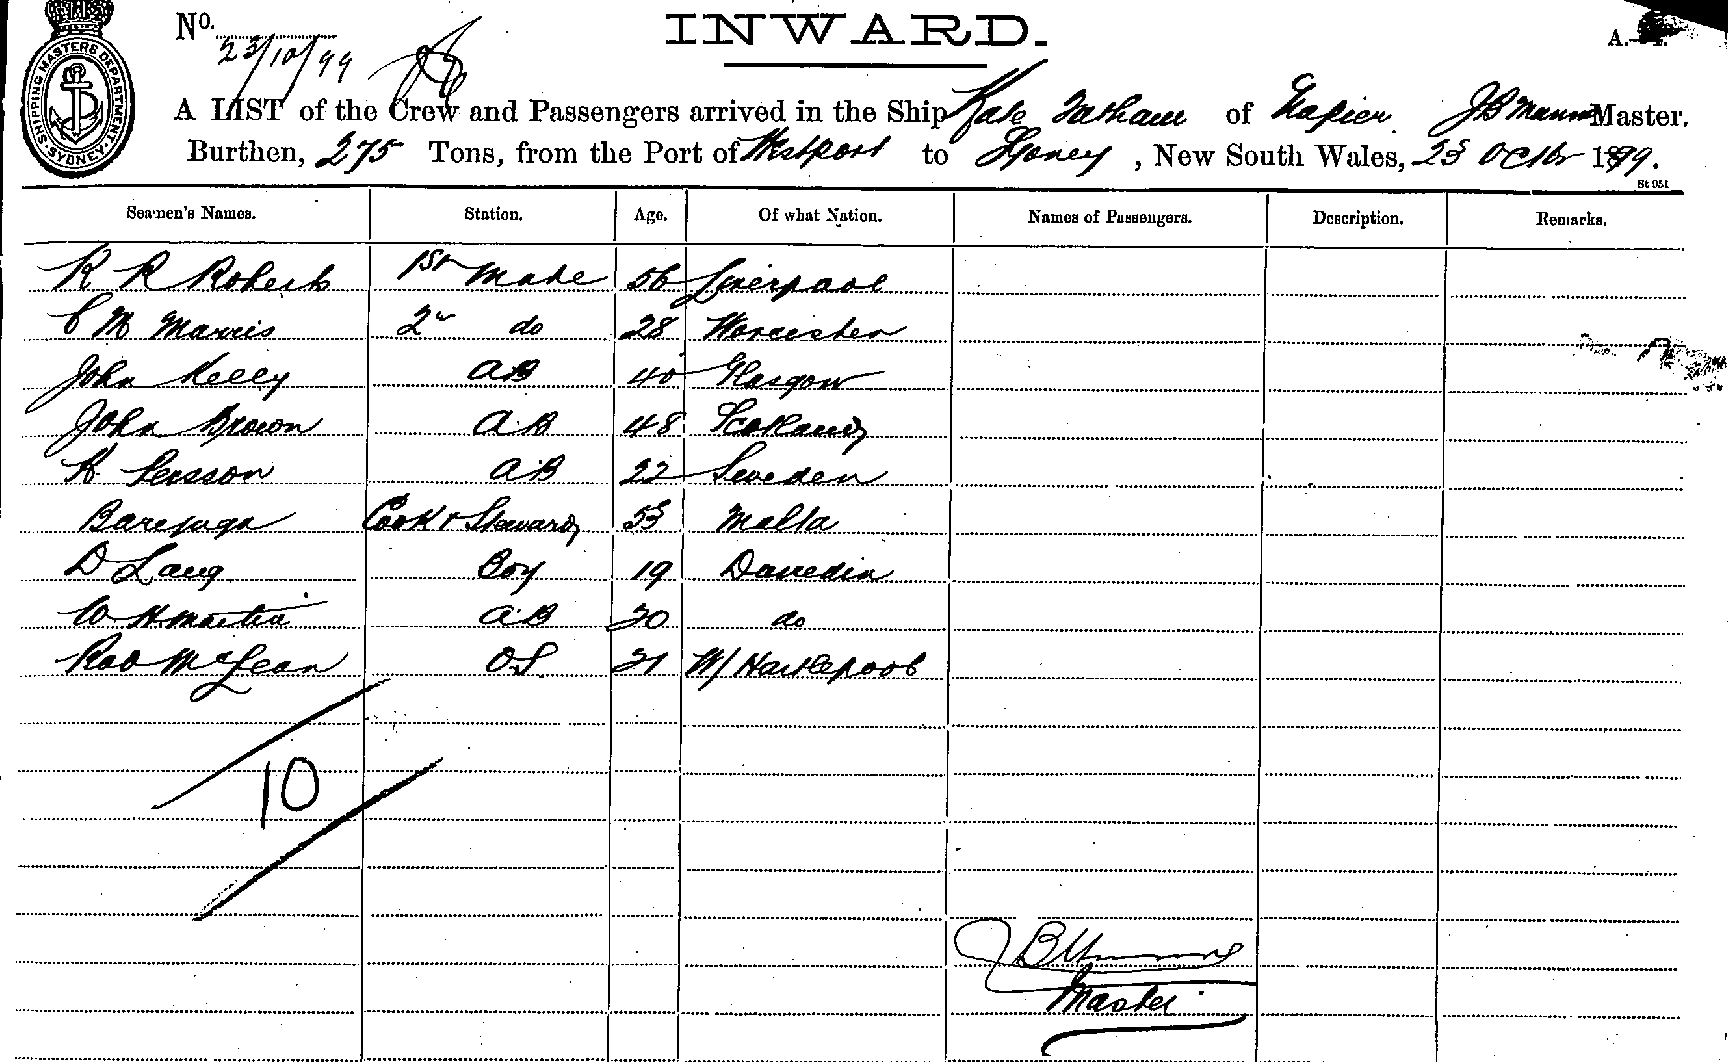 SHIPPING MASTERS DEPARTMENT SYDNEY
No. 23/10/99
INWARD.
A LIST of the Crew and Passengers arrived in the Ship Kate Tatham of Napier Master.
Burthen, 275 Tons, from the Port of Westport to Sydney, New South Wales, 23 Octbr 1899.
St 951
Seamen's Names. Station. Age. Of what Nation. Names of Passengers. Description. Remarks.
R R Roberts 1st Mate 56 Liverpool
C M Marris 2nd do 28 Worcister
John Kelly AB 40 Glasgow
John Brown AB 48 Scotland
A Persson AB 22 Sweden
Cook & Steward 53 Malta
D Lang Boy 19 Dunedin
W H Martin AB 20 do
Rob McLean OS 21 W/ Hartlepool
10
Master